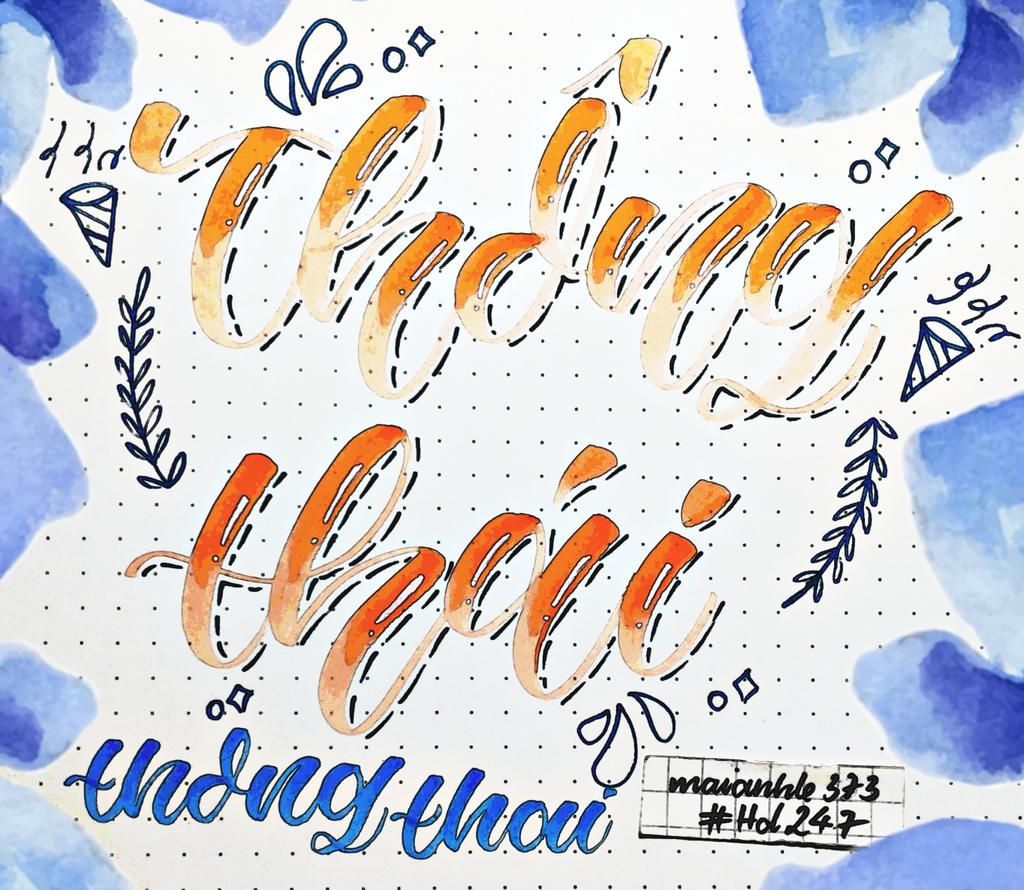 Thông
thái
thong thai
maianhle 373
#Hd 247